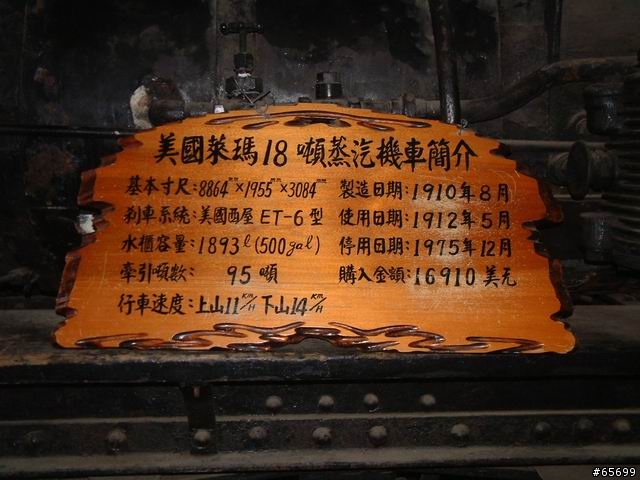 美國萊瑪18噸蒸汽機車簡介
基本寸尺:8864mm×1955mm×3084mm
刹車系統:美國西屋 ET-6型
水櫃容量:1893ℓ(500gal)
牽引噸數: 95噸
行車速度:上山11KM/H 下山14KM/H
製造日期:1910年8月
使用日期:1912年5月
停用日期:1975年12月
購入金額:16910美元
#65699